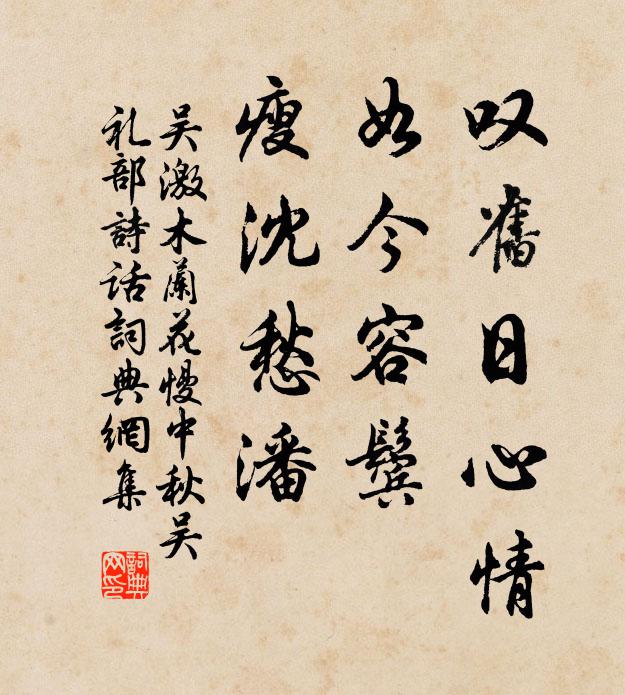 叹舊日心情
如今容鬓
瘦沈愁潘
吴激木蘭花慢中秋吴
礼部詩话詞典網集
詞典网印